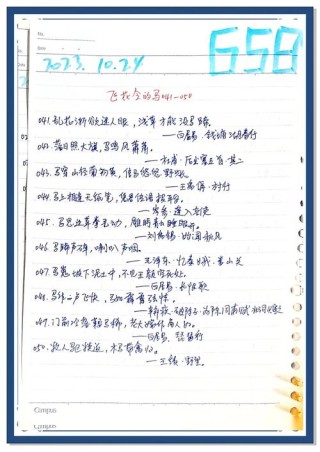 No.
Date
658
2023.10.24
飞花令的马041-050
041.乱花渐欲迷人眼，浅草才能没马蹄。
——白居易·钱塘湖春行
042.落日照大旗，马鸣风萧萧。
——杜甫·后出塞五首·其二
043.马穿山径菊初黄，信马悠悠野兴长。
——王禹偁·村行
044.马上相逢无纸笔，凭君传语报平安。
——岑参·逢入京使
045.马思边草拳毛动，雕眄青云睡眼开。
——刘禹锡·始闻秋风
046.马蹄声碎，喇叭声咽。
——毛泽东·忆秦娥·娄山关
047.马嵬坡下泥土中，不见玉颜空死处。
——白居易·长恨歌
048.马作的卢飞快，弓如霹雳弦惊。
——辛弃疾·破阵子·为陈同甫赋壮词以寄之
049.门前冷落鞍马稀，老大嫁作商人妇。
——白居易·琵琶行
050.牧人驱犊返，猎马带禽归。
——王绩·野望
Campus
Campus